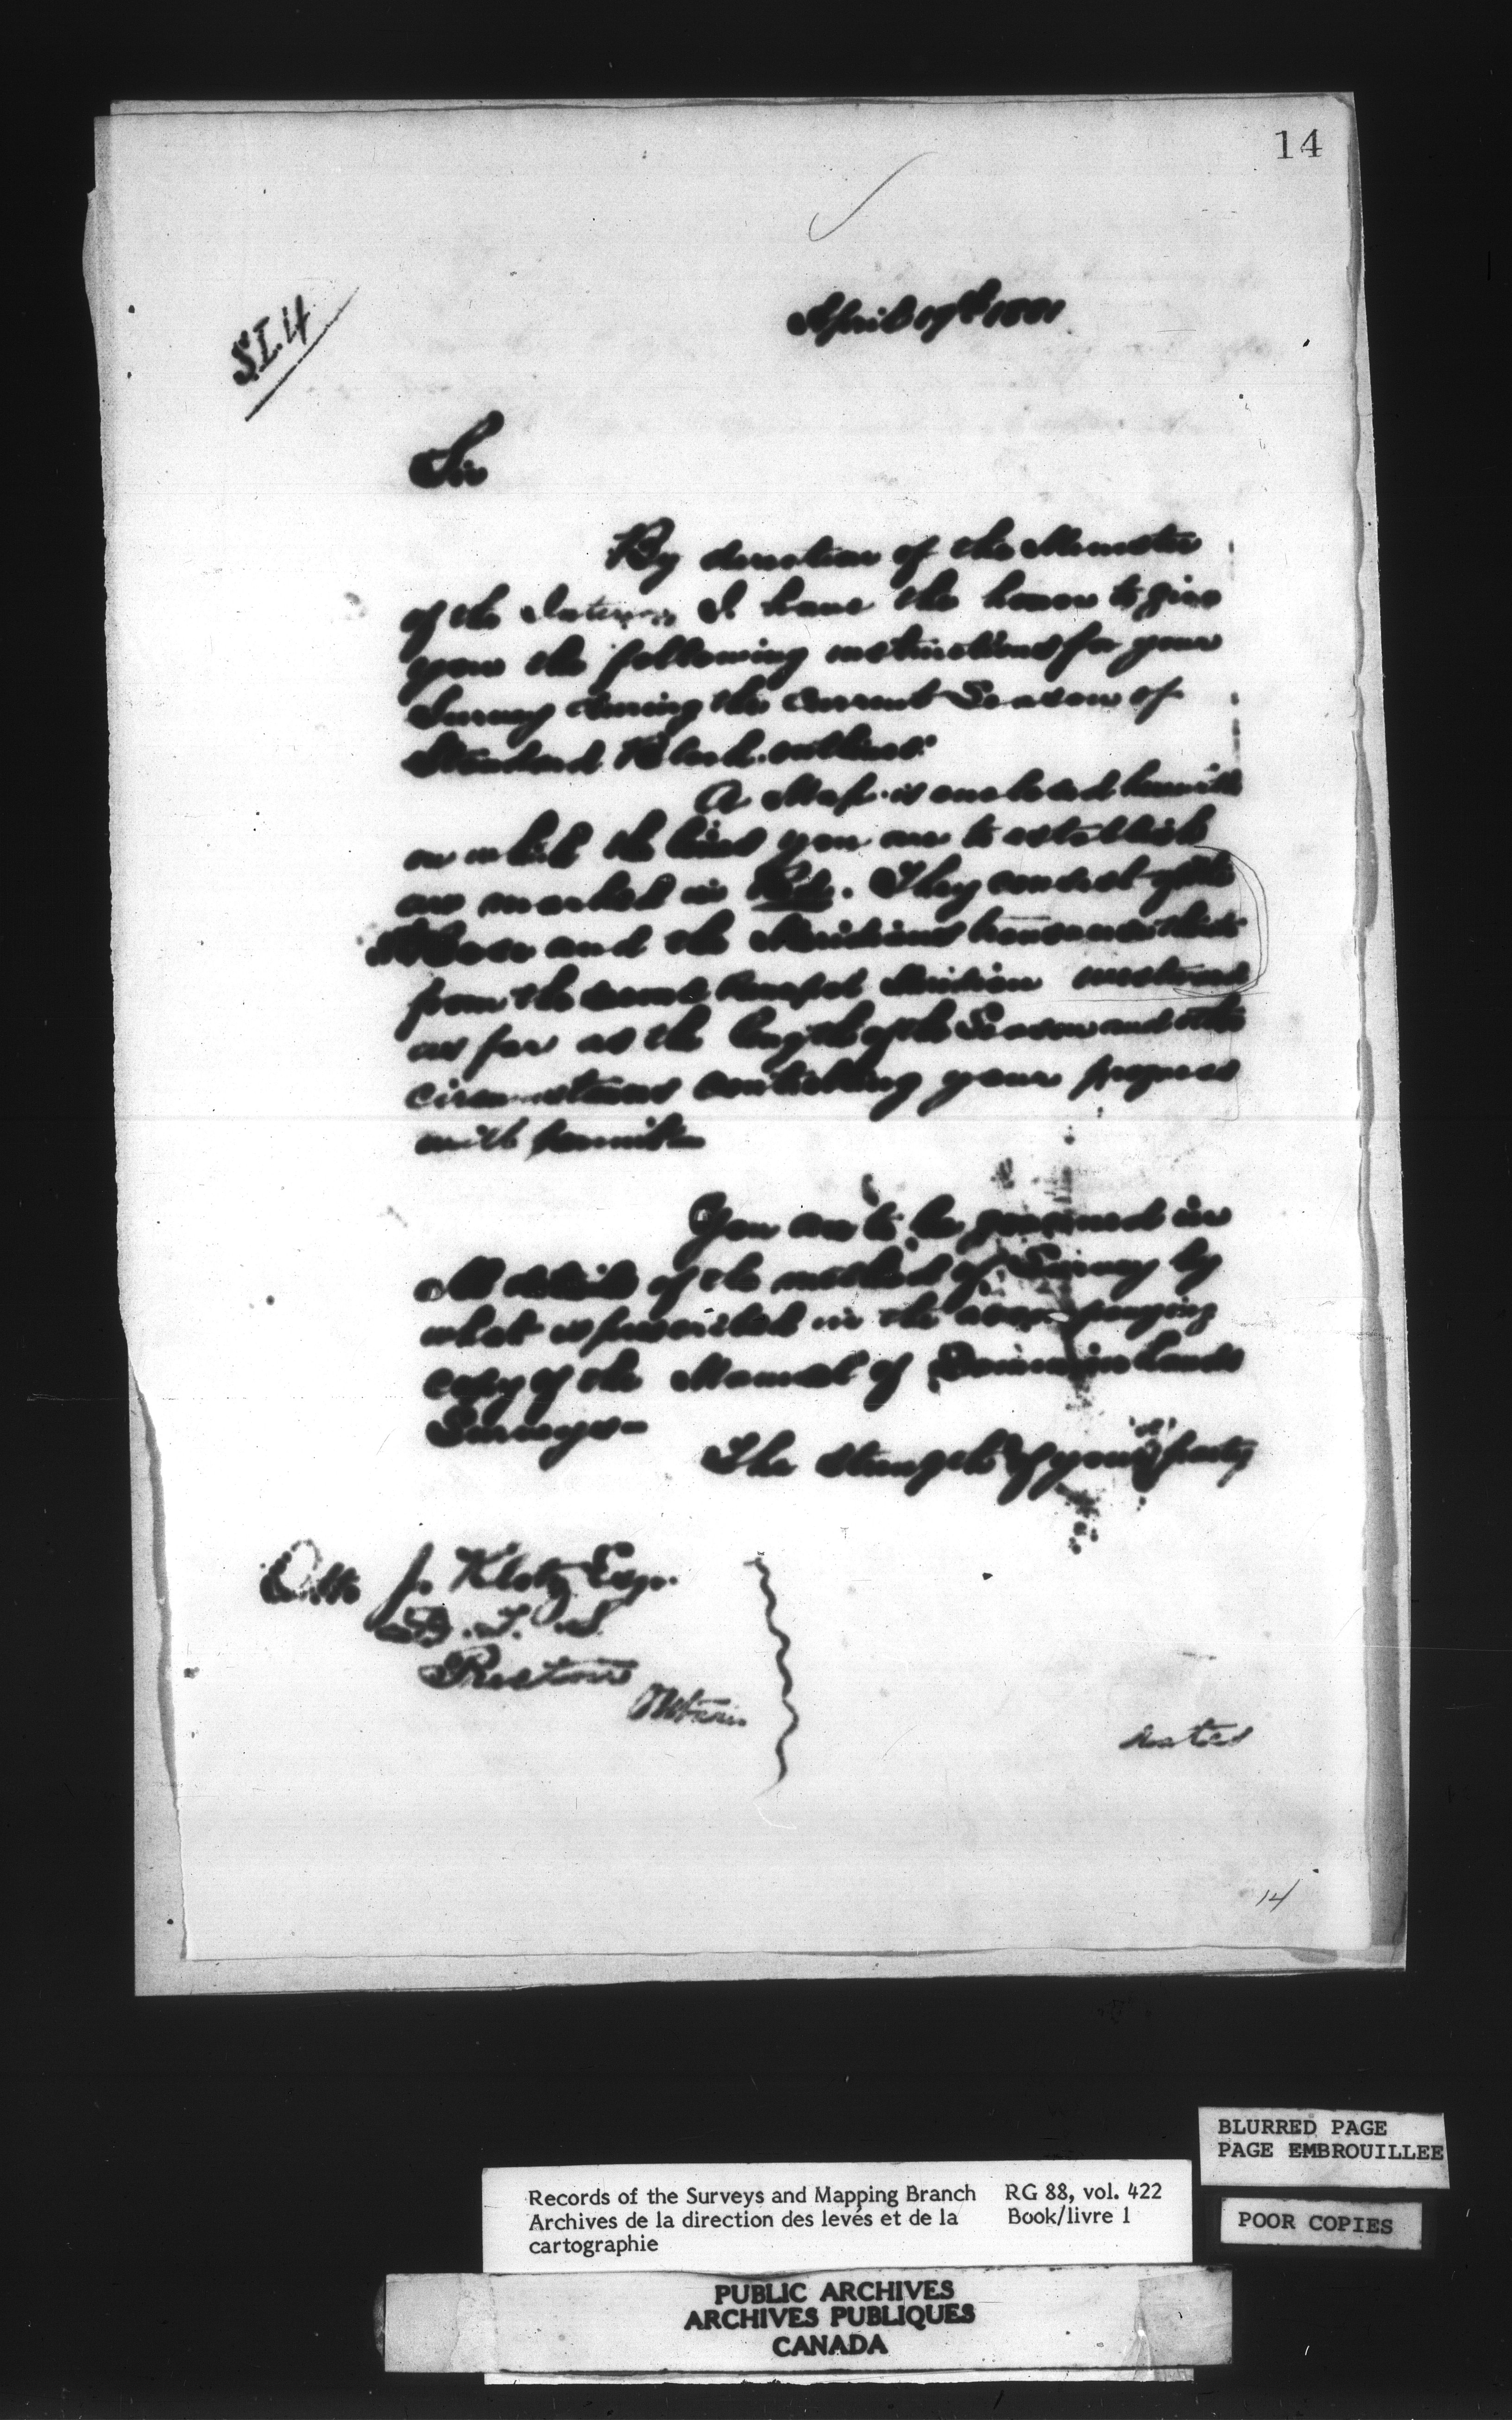 14
S.I.4
April 19th 1881
Sir
By direction of the Minister
of the Interior I have the honor to give
you the following instructions for your
Survey during the current Season of
Standard Block outlines.
A Map is enclosed herewith
on which the lines you are to establish
are marked in Red. They consist of the
Base and the Meridians
from the second Meridian westward
as far as the length of the Season and other
circumstances controlling your progress
will permit
You are to be governed in
all details of the method of Survey by
what is prescribed in the accompanying
copy of the Manual of Dominion Lands
Surveys
The strength of your party
Otto J. Klotz Esq.
D.L.S.
Preston
Ontario
14
BLURRED PAGE
PAGE EMBROUILLEE
Records of the Surveys and Mapping Branch RG 88, vol. 422
Archives de la direction des levés et de la Book/livre 1
cartographie
POOR COPIES
PUBLIC ARCHIVES
ARCHIVES PUBLIQUES
CANADA